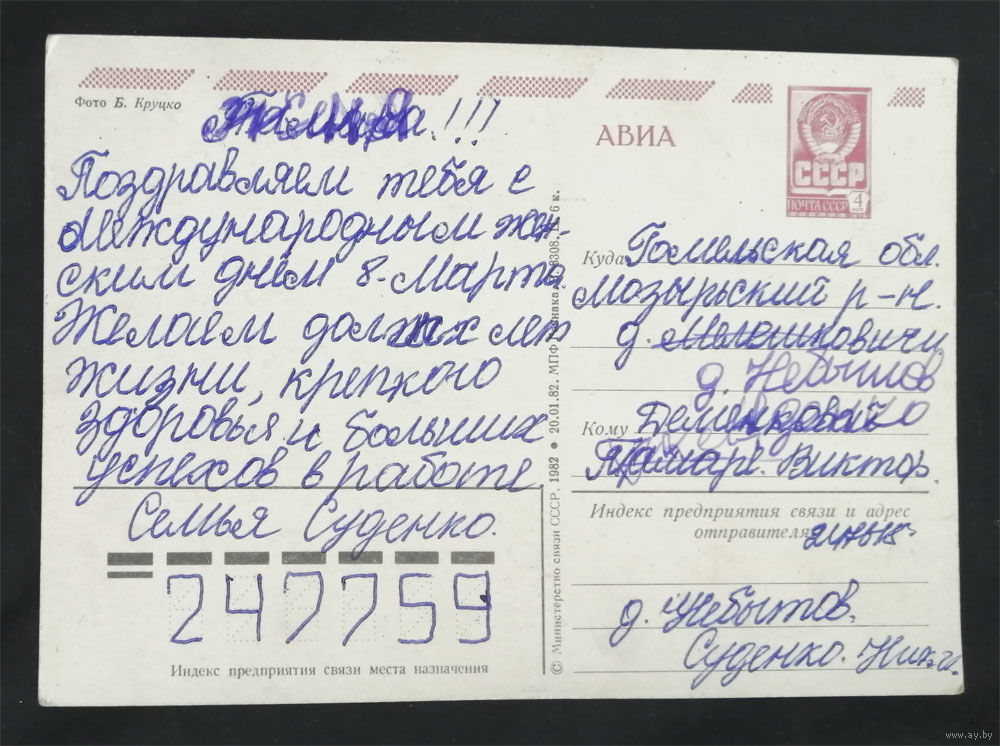 Фото Б. Круцко
Тамара!!!
Поздравляем тебя с
Международным жен-
ским днём 8-Марта
Желаем долгих лет
жизни, крепкого
здоровья и больших
успехов в работе
Семья Суденко.
247759
Индекс предприятия связи места назначения
© Министерство связи СССР. 1982 ● 20.01.82. МПФ Гознака. 6 к.
АВИА
СССР
ПОЧТА СССР 4
Куда Гомельская обл.
Мозырьский р-н.
д. Мелешковичи
д. Небытов
Кому Деменковой
Тамаре. Виктор.
Индекс предприятия связи и адрес
отправителя
д. Небытов.
Суденко.
www.ay.by